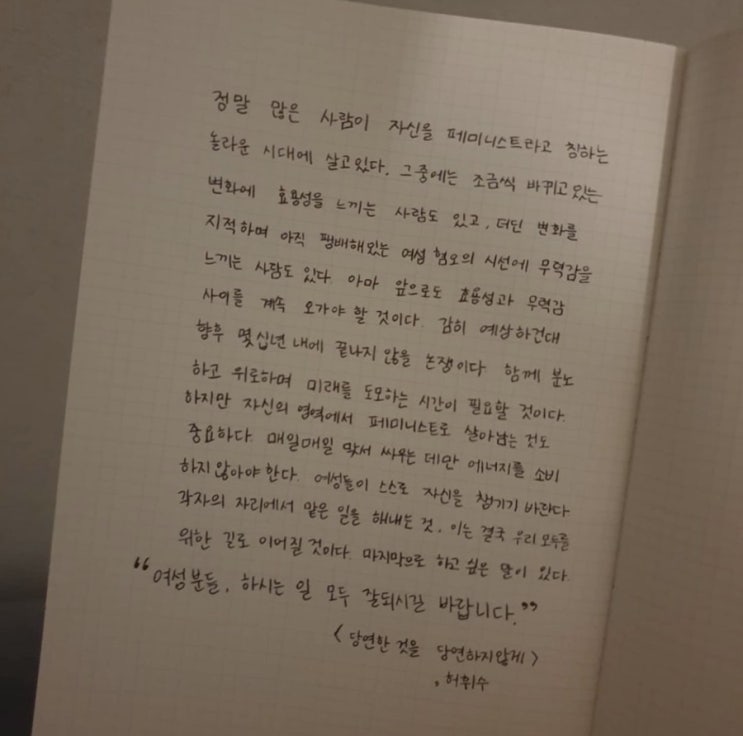 정말 많은 사람이 자신을 페미니스트라고 칭하는
놀라운 시대에 살고있다. 그중에는 조금씩 바뀌고있는
변화에 효용성을 느끼는 사람도 있고, 더딘 변화를
지적하며 아직 팽배해있는 여성 혐오의 시선에 무력감을
느끼는 사람도 있다. 아마 앞으로도 효용성과 무력감
사이를 계속 오가야 할 것이다. 감히 예상하건대
향후 몇십년 내에 끝나지 않을 논쟁이다 함께 분노
하고 위로하며 미래를 도모하는 시간이 필요할 것이다.
하지만 자신의 영역에서 페미니스트로 살아남는 것도
중요하다. 매일매일 맞서 싸우는 데만 에너지를 소비
하지않아야한다. 여성들이 스스로 자신을 챙기기 바란다
각자의 자리에서 맡은 일을 해내는 것, 이는 결국 우리 모두를
위한 길로 이어질 것이다. 마지막으로 하고 싶은 말이 있다.
“여성분들, 하시는 일 모두 잘되시길 바랍니다.”
<당연한 것을 당연하지않게>
, 허휘수